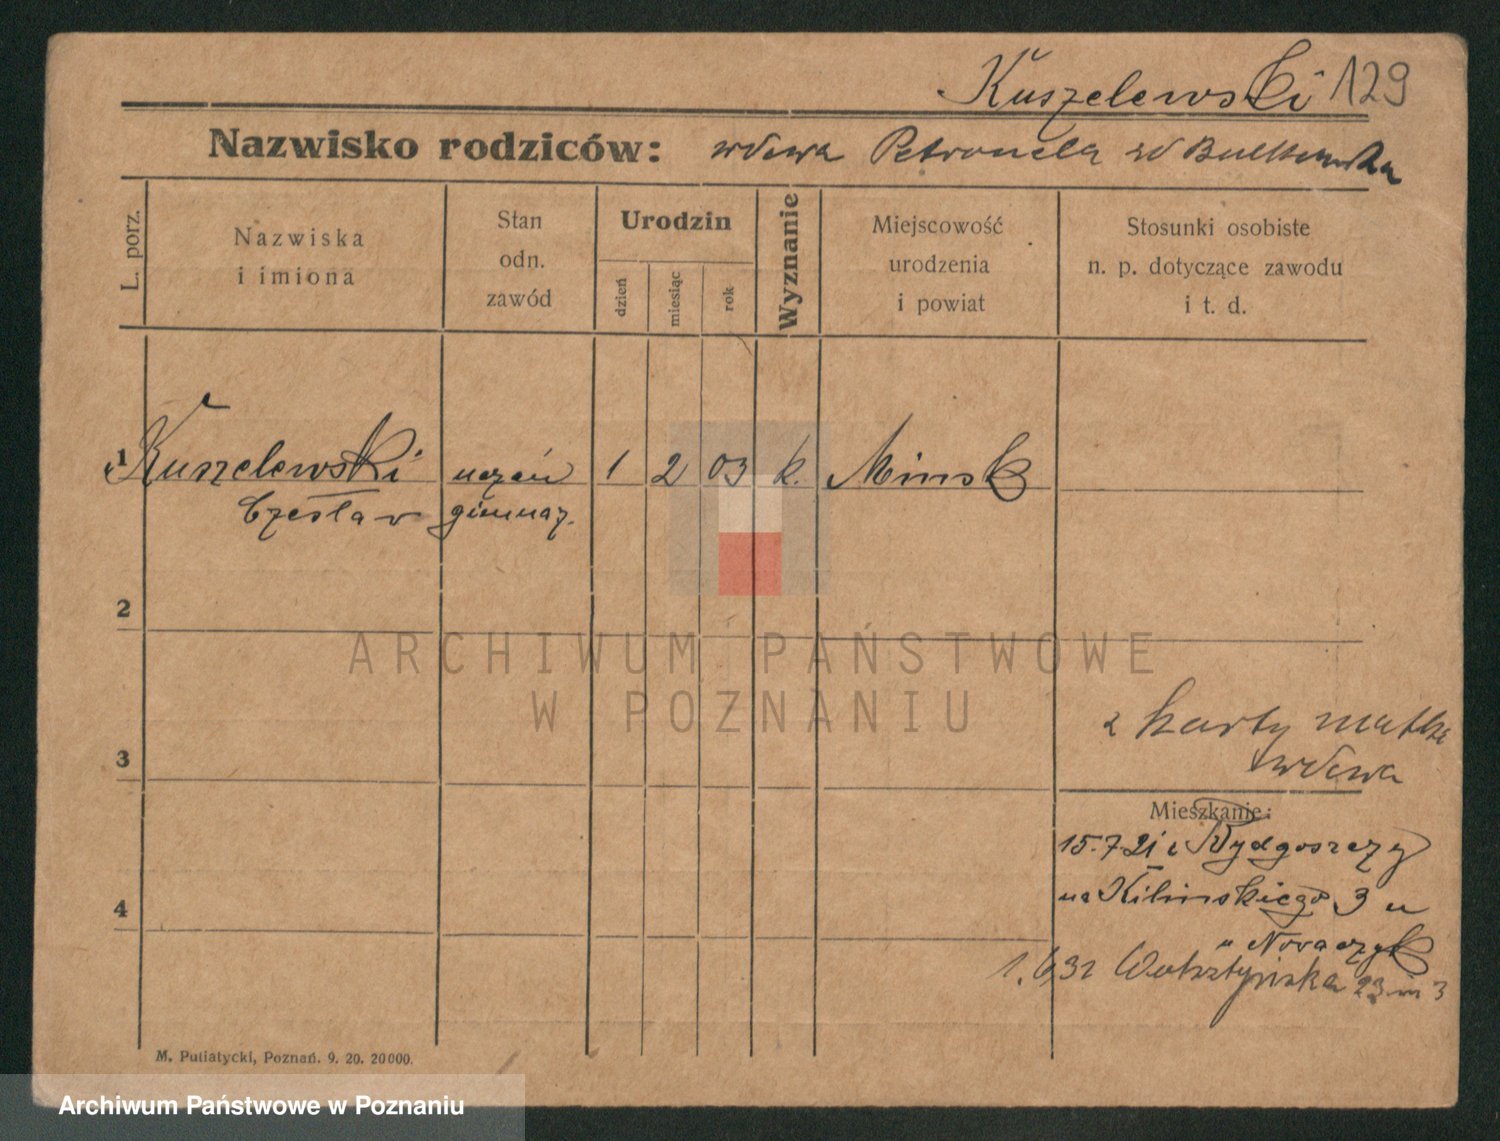 Kuszelewski 129
Nazwisko rodziców: wdowa Petronela zd
L. porz.
Nazwiska
i imiona
Stan
odn.
zawód
Urodzin
dzień
miesiąc
rok
Wyznanie
Miejscowość
urodzenia
i powiat
Stosunki osobiste
n. p. dotyczące zawodu
i t. d.
1 Kuszelewski uczeń 1 2 03 k. Minsk
Czesław gimnaz.
2
ARCHIWUM PAŃSTWOWE
W POZNANIU
z karty matki
wdowa
3
Mieszkanie:
15.7.21 z Bydgoszczy
na Kilinskiego 3 u
4
" Nowaczyk
1.6.32 Wolsztyńska 23 m 3
M. Putiatycki, Poznań. 9. 20. 20000.
Archiwum Państwowe w Poznaniu